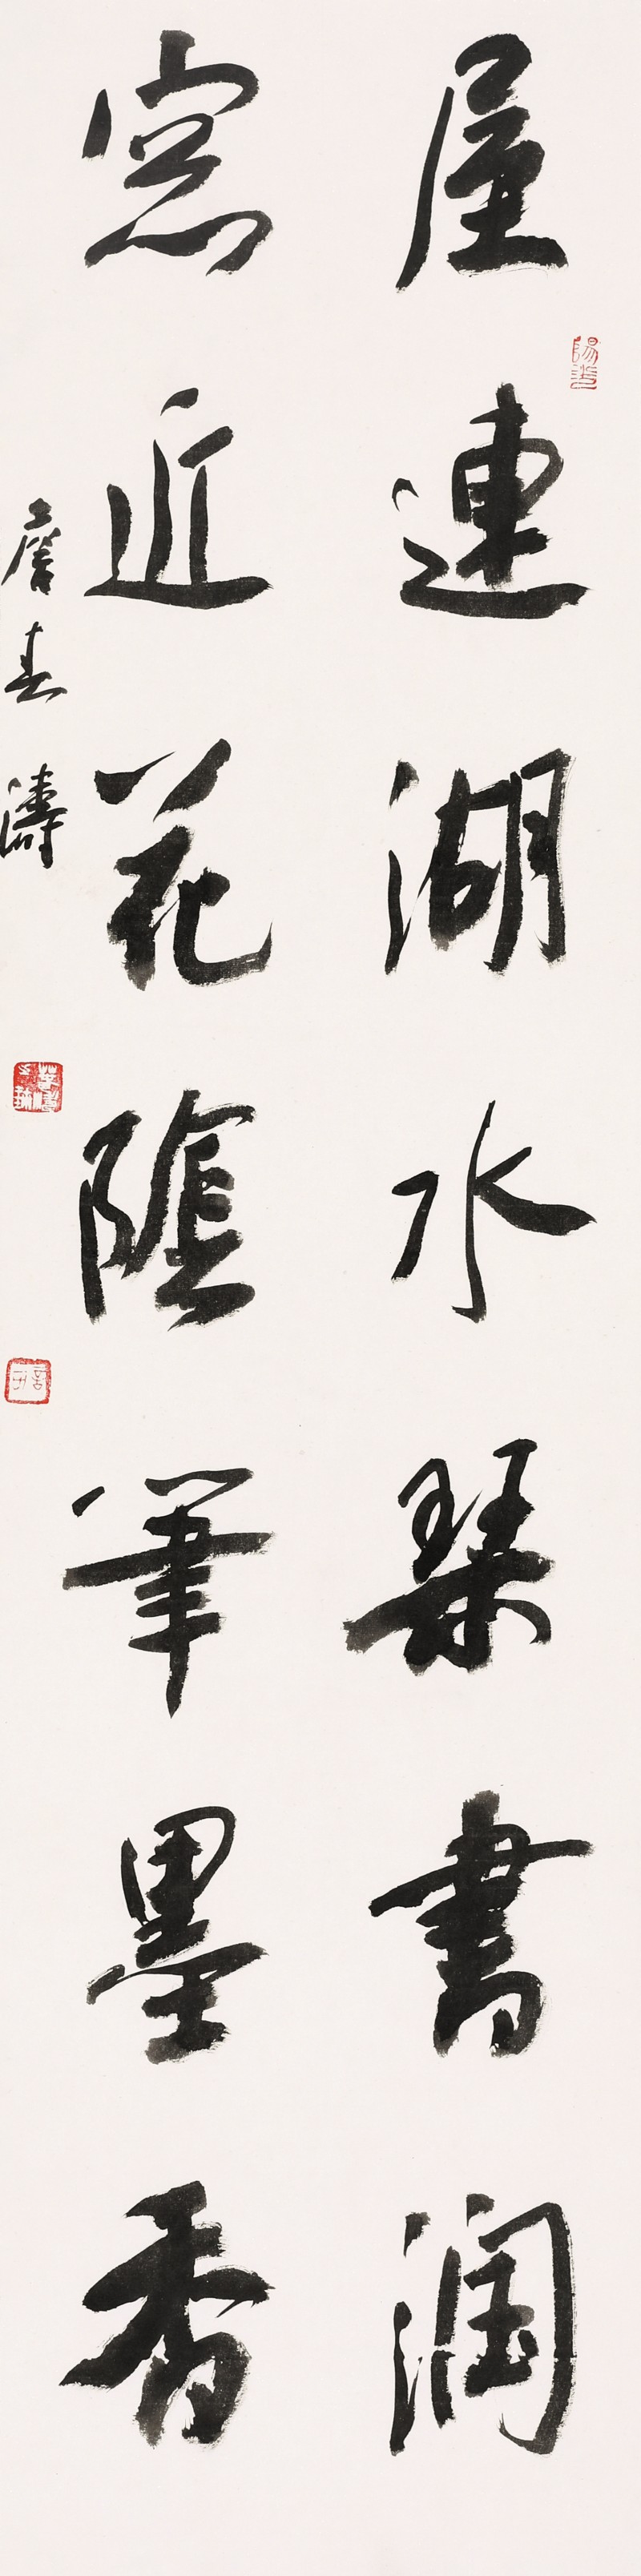 屋連湖水琴書潤
窓近花陰筆墨香
詹春濤